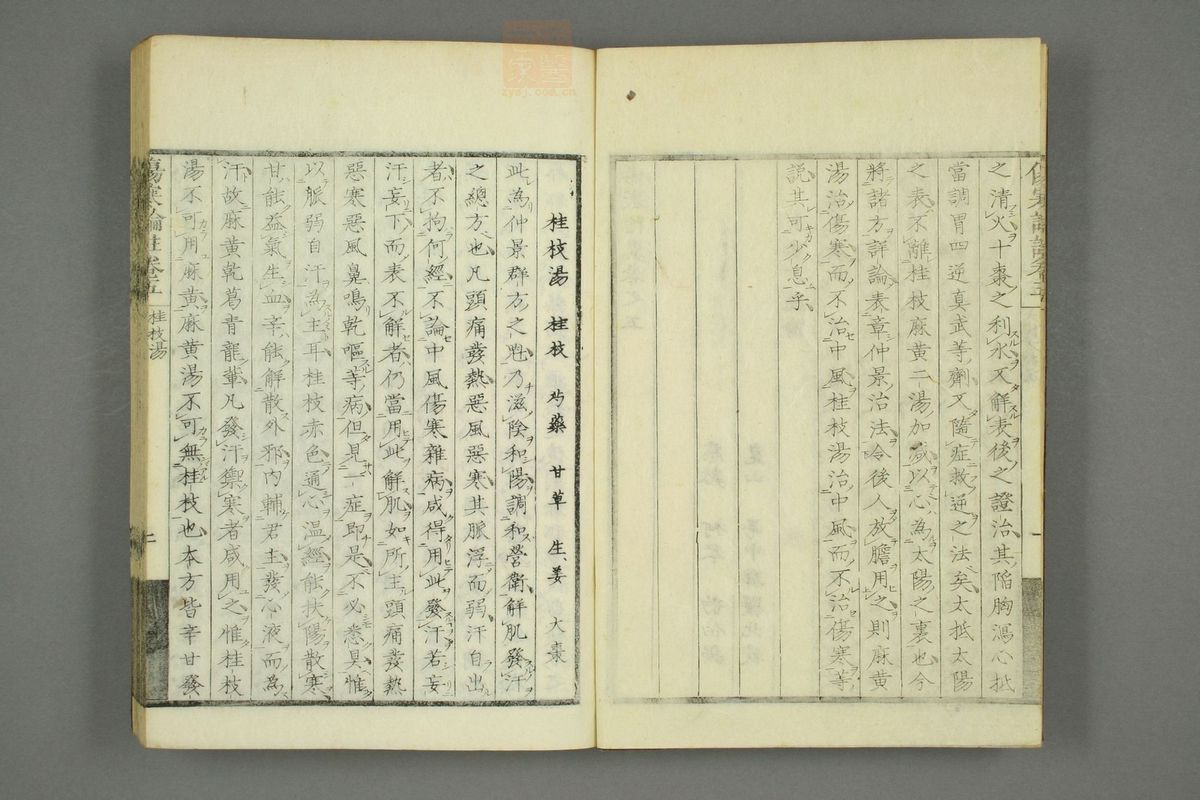 之清火十棗之利水又解表後之證治其陷胸瀉心抵
當調胃四逆真武等劑又隨症救逆之法矣太抵太陽
之表不離桂枝麻黃二湯加減以心為太陽之裏也今
將諸方詳論表章仲景治法令後人放膽用之則麻黃
湯治傷寒而不治中風桂枝湯治中風而不治傷寒等
說其可少息乎
桂枝湯 桂枝 芍藥 甘草 生姜 大棗
此為仲景群方之魁乃滋陰和陽調和營衛解肌發汗
之總方也凡頭痛發熱惡風惡寒其脈浮而弱汗自出
者不拘何經不論中風傷寒雜病咸得用此發汗若妄
汗妄下而表不解者仍當用此解肌如所主頭痛發熱
惡寒惡風鼻鳴乾嘔等病但見一症即是不必悉具惟
以脈弱自汗為主耳桂枝赤色通心溫經能扶陽散寒
甘能益氣生血辛能解散外邪內輔君主發心液而為
汗故麻黃乾葛青龍輩凡發汗禦寒者咸用之惟桂枝
湯不可用麻黃麻黃湯不可無桂枝也本方皆辛甘發
傷寒論註卷五
桂枝湯
zysj.com.cn